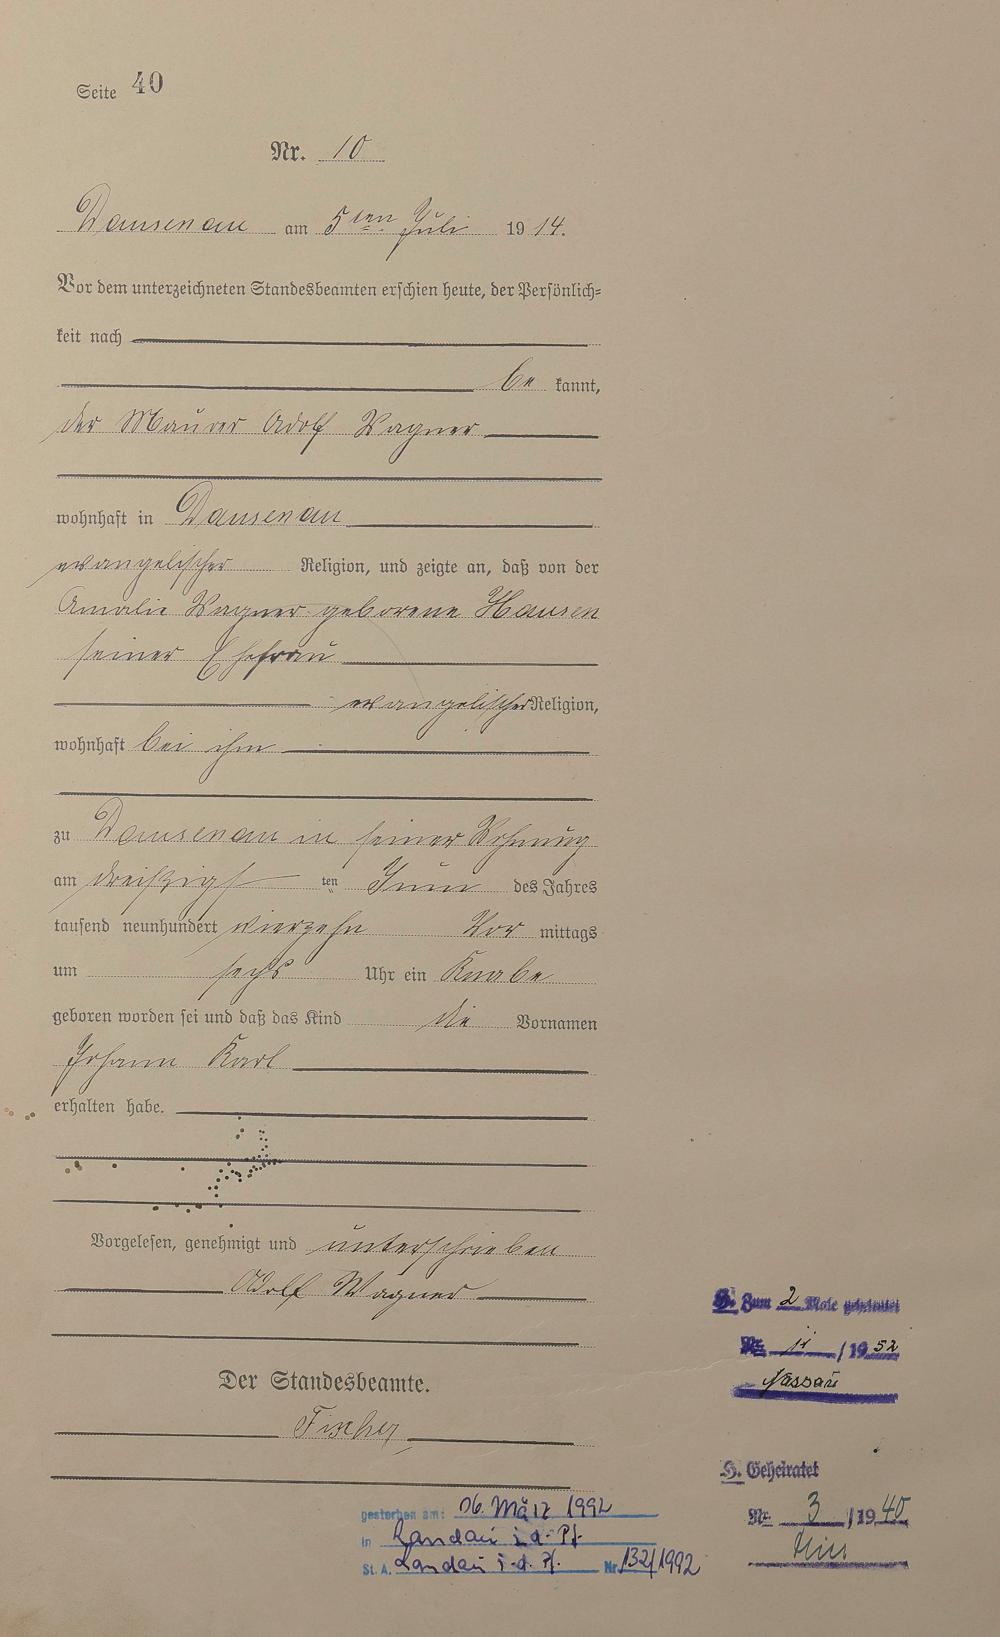 Seite 40
Nr. 10
Dausenau am 5ten Juli 1914.
Vor dem unterzeichneten Standesbeamten erschien heute, der Persönlich=
keit nach
be kannt,
der Maurer Adolf Wagner
wohnhaft in Dausenau
evangelischer Religion, und zeigte an, daß von der
Amalie Wagner geborene Hausen
seiner Ehefrau
evangelischer Religion,
wohnhaft bei ihm
zu Dausenau in seiner Wohnung
am dreißigsten Juni des Jahres
tausend neunhundert vierzehn Vor mittags
um sechs Uhr ein Knabe
geboren worden sei und daß das Kind die Vornamen
Johann Karl
erhalten habe.
Vorgelesen, genehmigt und unterschrieben
Adolf Wagner
Der Standesbeamte.
Fischer
H. Zum 2 Male geheiratet
Nr. 11/1952
Nassau
H. Geheiratet
Nr. 3/1940
gestorben am: 06. März 1992
in Landau i. d. Pf.
St. A. Landau i. d. Pf. Nr. 132/1992